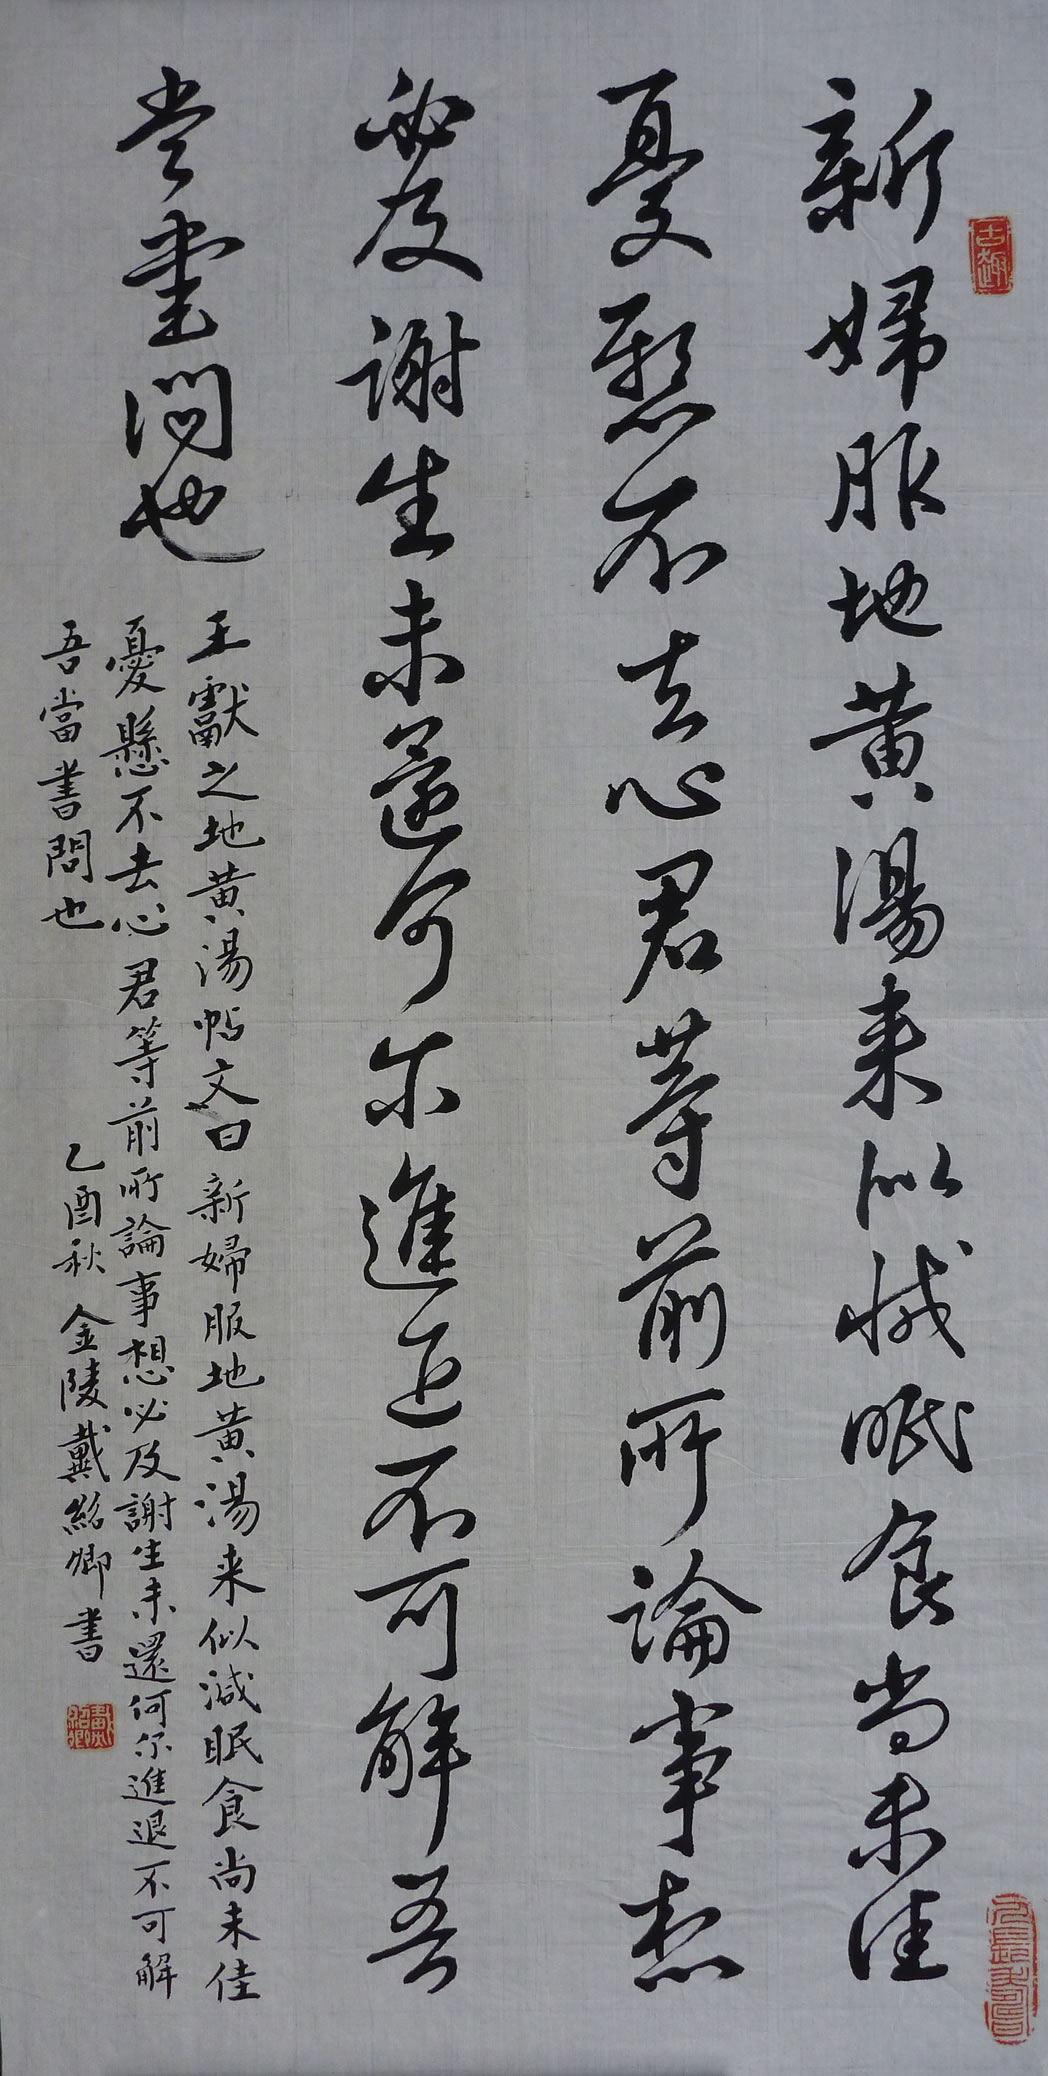 新婦服地黄湯来似減眠食尚未佳
憂懸不去心君等前所論事想
必及謝生未還何尔進退不可解吾
當書問也
王獻之地黄湯帖文曰新婦服地黄湯来似減眠食尚未佳
憂懸不去心君等前所論事想必及謝生未還何尔進退不可解
吾當書問也
乙酉秋金陵戴紹卿書
古趣
戴紹卿